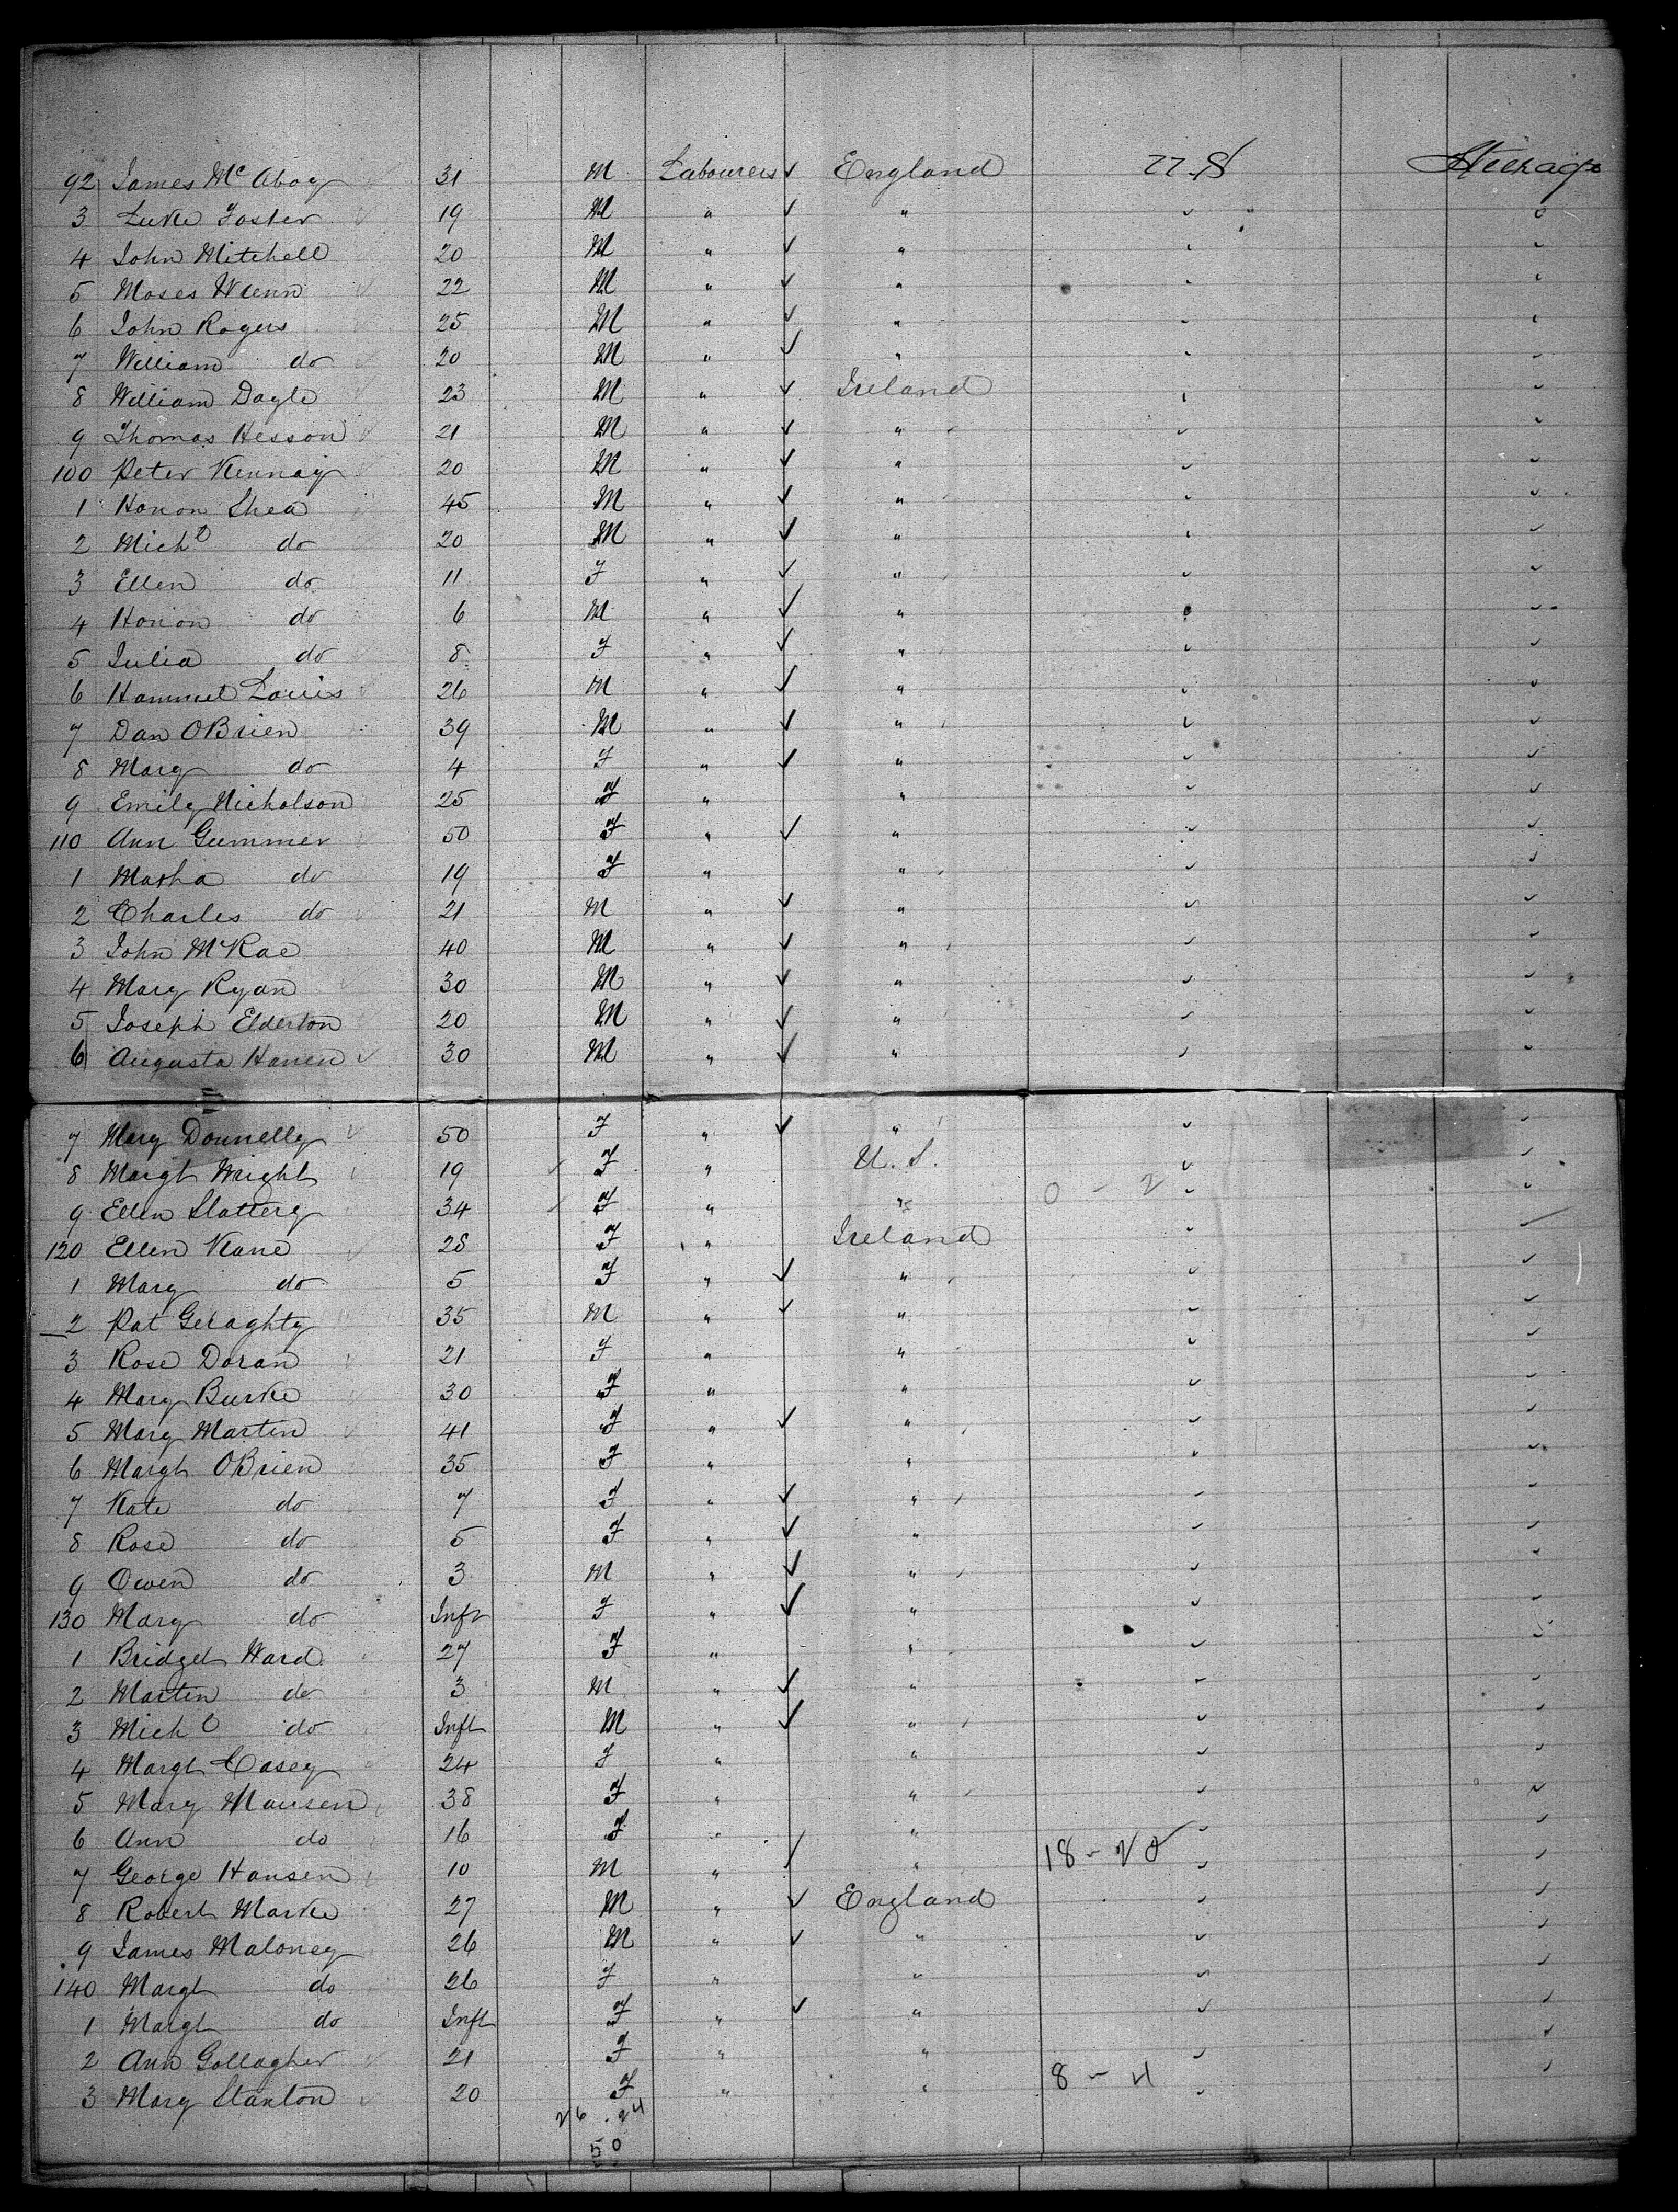 92 James McAboy 31 M Labourers ✓ England U.S Steerage
3 Luke Foster 19 M " ✓ " " "
4 John Mitchell 20 M " ✓ " " "
5 Moses Wrenn 22 M " ✓ " " "
6 John Rogers 25 M " ✓ " " "
7 William do 20 M " ✓ " " "
8 William Dagle 23 M " ✓ Ireland " "
9 Thomas Hesson 21 M " ✓ " " "
100 Peter Kennay 20 M " ✓ " " "
1 Honon Shea 45 M " ✓ " " "
2 Michl do 20 M " ✓ " " "
3 Ellen do 11 F " ✓ " " "
4 Honon do 6 M " ✓ " " "
5 Julia do 8 F " ✓ " " "
6 Hammet Louis 26 M " ✓ " " "
7 Dan OBrien 39 M " ✓ " " "
8 Mary do 4 F " ✓ " " "
9 Emily Nicholson 25 F " " " "
110 Ann Gummer 50 F " ✓ " " "
1 Martha do 19 F " " " "
2 Charles do 21 M " ✓ " " "
3 John McRae 40 M " ✓ " " "
4 Mary Ryan 30 M " ✓ " " "
5 Joseph Elderton 20 M " ✓ " " "
6 Augusta Hanen 30 M " ✓ " " "
7 Mary Donnelly 50 F " ✓ " " "
8 Margt Wright 19 F " U.S. " "
9 Ellen Slattery 34 F " " 0 - 2 " "
120 Ellen Kane 28 F " Ireland " "
1 Mary do 5 F " ✓ " " "
2 Pat Geraghty 35 M " ✓ " " "
3 Rose Doran 21 F " " " "
4 Mary Burke 30 F " " " "
5 Mary Martin 41 F " ✓ " " "
6 Margt OBrien 35 F " " " "
7 Kate do 7 F " ✓ " " "
8 Rose do 5 F " ✓ " " "
9 Owen do 3 M " ✓ " " "
130 Mary do Inft F " ✓ " " "
1 Bridget Ward 27 F " " " "
2 Martin do 3 M " ✓ " " "
3 Michl do Inft M " ✓ " " "
4 Margt Casey 24 F " " " "
5 Mary Mansen 38 F " " " "
6 Ann do 16 F " " " "
7 George Hansen 10 M " ✓ " 18 - 20 " "
8 Robert Marke 27 M " ✓ England " "
9 James Maloney 26 M " ✓ " " "
140 Margt do 26 F " " " "
1 Margt do Inft F " ✓ " " "
2 Ann Gollagher 21 F " " " "
3 Mary Stanton 20 F " " 8 - 4 " "
26 . 24
50